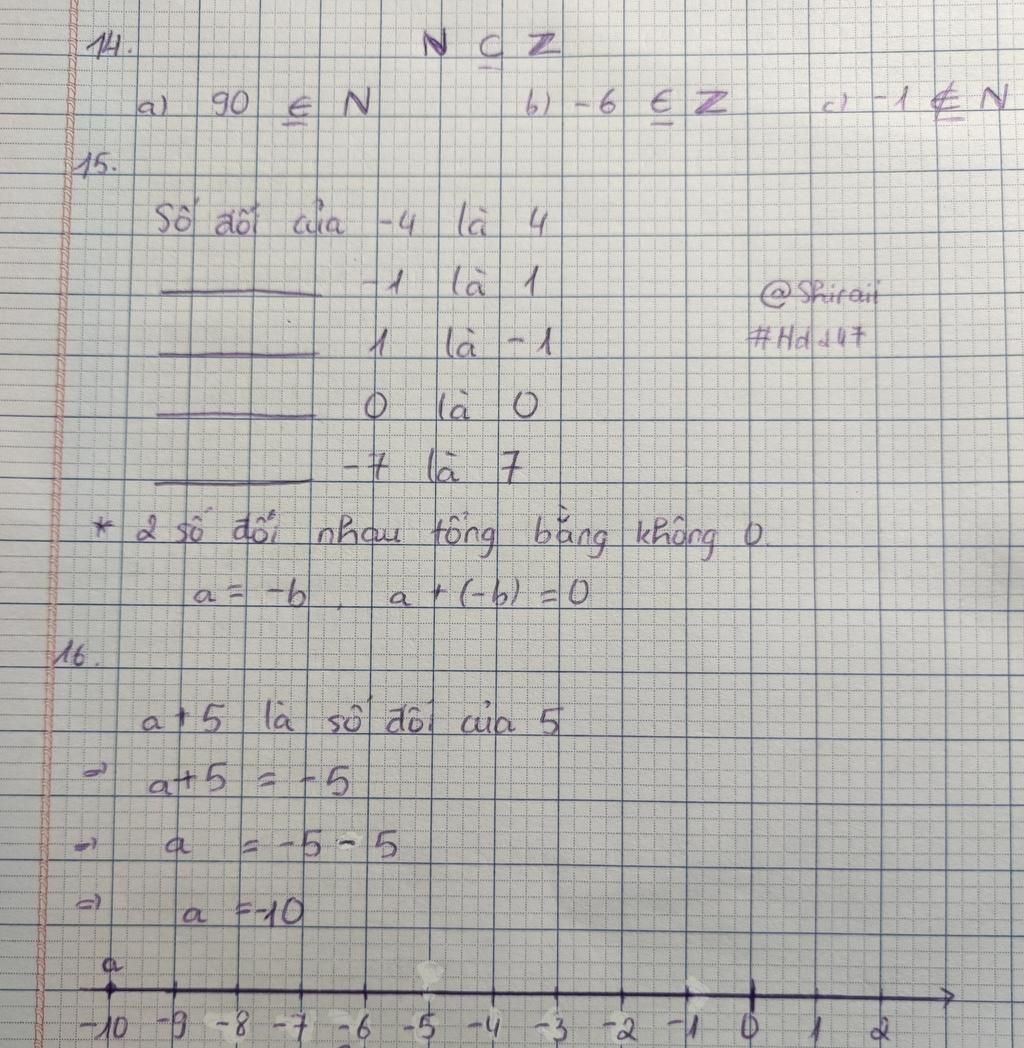 14. N ⊂ Z
a) 90 ∈ N b) -6 ∈ Z c) -1 ∉ N
15.
Số đối của -4 là 4
-1 là 1
@Shiraii
1 là -1
#Hd247
0 là 0
-7 là 7
* 2 số đối nhau tổng bằng không 0.
a = -b . a + (-b) = 0
16.
a + 5 là số đối của 5
⇒ a + 5 = -5
⇒ a = -5 - 5
⇒ a = -10
a
-10 -9 -8 -7 -6 -5 -4 -3 -2 -1 0 1 2